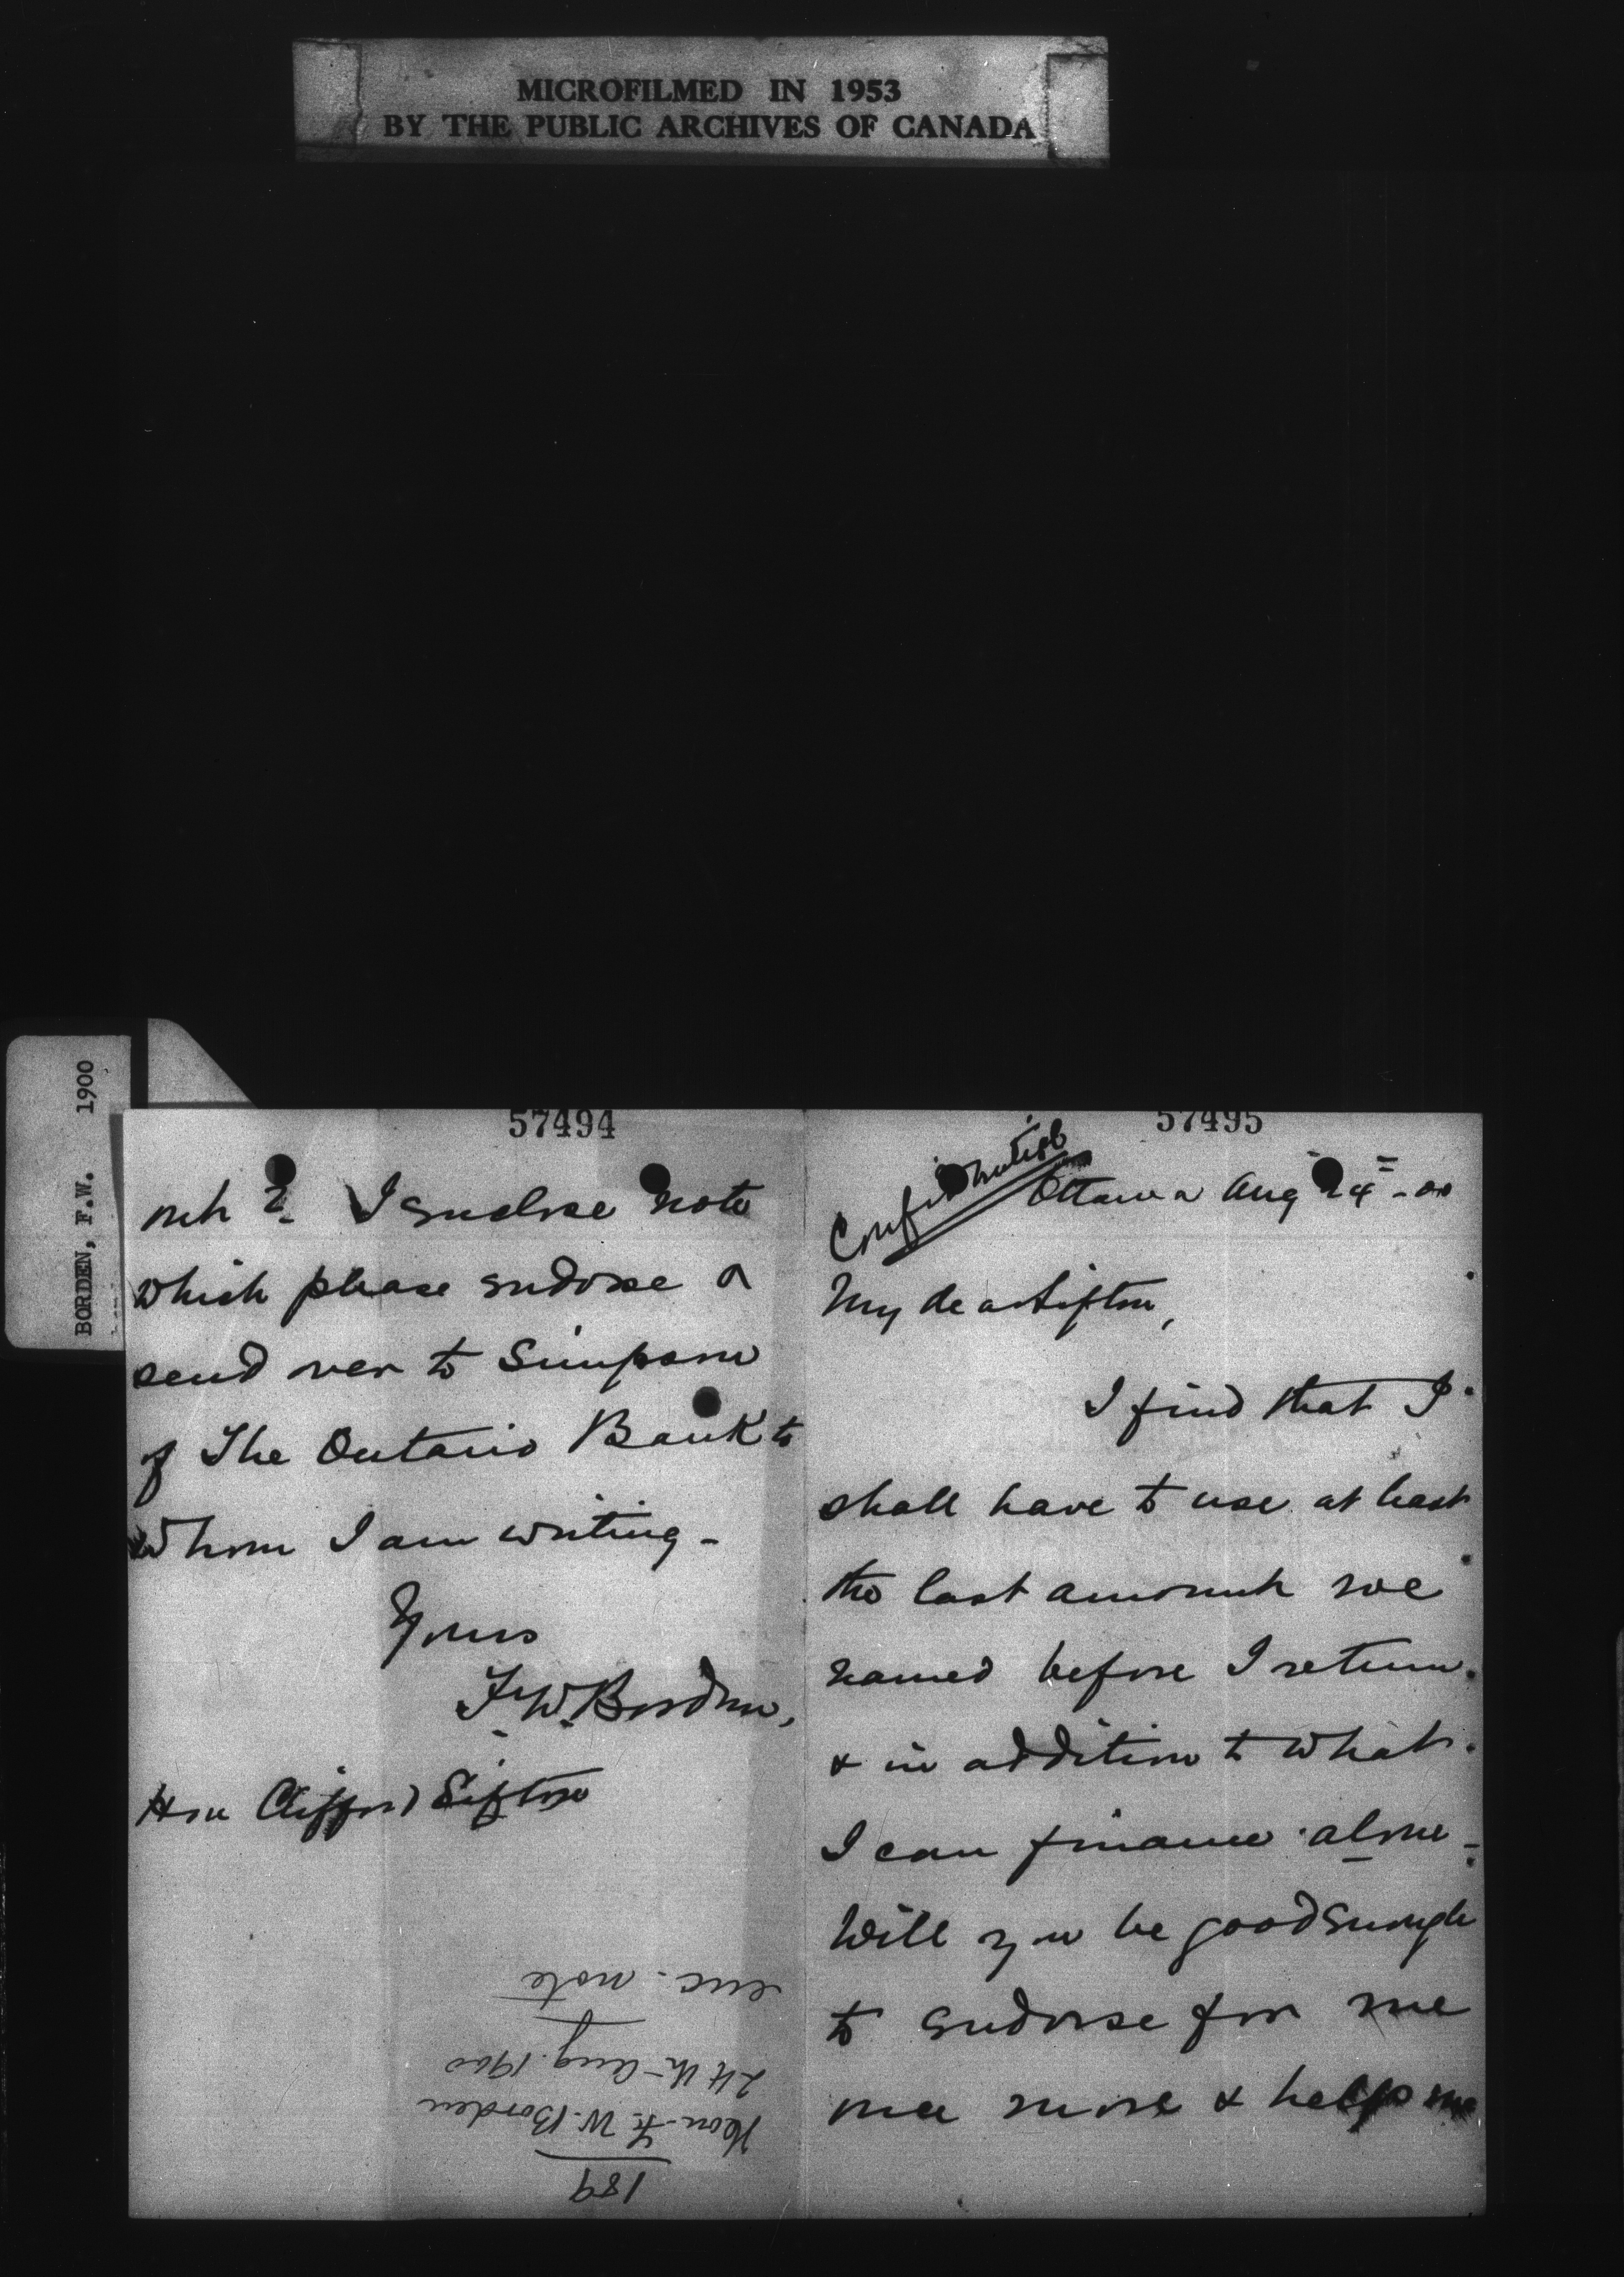 MICROFILMED IN 1953
BY THE PUBLIC ARCHIVES OF CANADA
BORDEN, F.W. 1900
57495
Confidential
Ottawa Aug 24th - 00
My dear Sifton,
I find that I
shall have to use at least
the last amount we
named before I return
& in addition to what
I can finance alone -
Will you be good enough
to endorse for me
once more & help me
57494
out? I enclose note
which please endorse &
send over to Simpson
of The Ontario Bank to
whom I am writing -
Yours
F.W. Borden,
Hon Clifford Sifton
189
Hon. F. W. Borden
24th Aug. 1900
enc. note